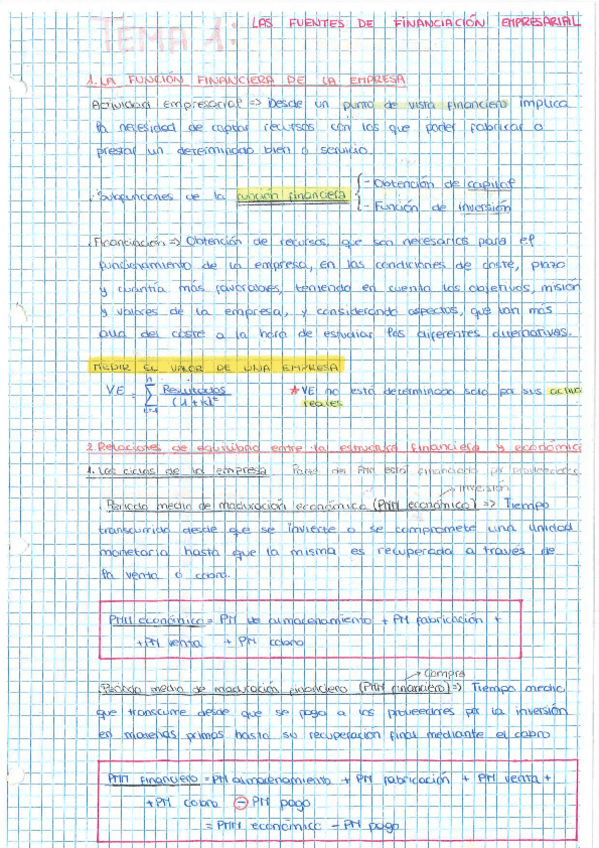 TEMA 1: LAS FUENTES DE FINANCIACIÓN EMPRESARIAL
1. LA FUNCIÓN FINANCIERA DE LA EMPRESA
Actividad empresarial => Desde un punto de vista financiero implica
la necesidad de captar recursos con los que poder fabricar o
prestar un determinado bien o servicio.
. Subfunciones de la función financiera { - Obtención de capital
- Función de inversión
. Financiación => Obtención de recursos, que son necesarios para el
funcionamiento de la empresa, en las condiciones de coste, plazo
y cuantía más favorables, teniendo en cuenta los objetivos, misión
y valores de la empresa, y considerando aspectos, que van más
allá del coste a la hora de estudiar las diferentes alternativas.
MEDIR EL VALOR DE UNA EMPRESA
VE = Σ Resultados / (1+K)^t
* VE no está determinado solo por sus activos
reales
2. Relaciones de equilibrio entre la estructura financiera y económica
1. Los ciclos de la empresa Parte del PMM está financiado por proveedores
→ Inversión
. Periodo medio de maduración económico (PMM económico) => Tiempo
transcurrido desde que se invierte o se compromete una unidad
monetaria hasta que la misma es recuperada a través de
la venta o cobro.
PMM económico = PM de almacenamiento + PM fabricación +
+ PM venta + PM cobro
→ Compra
. Periodo medio de maduración financiero (PMM financiero) => Tiempo medio
que transcurre desde que se paga a los proveedores por la inversión
en materias primas hasta su recuperación final mediante el cobro
PMM financiero = PM almacenamiento + PM fabricación + PM venta +
+ PM cobro - PM pago
= PMM económico - PM pago